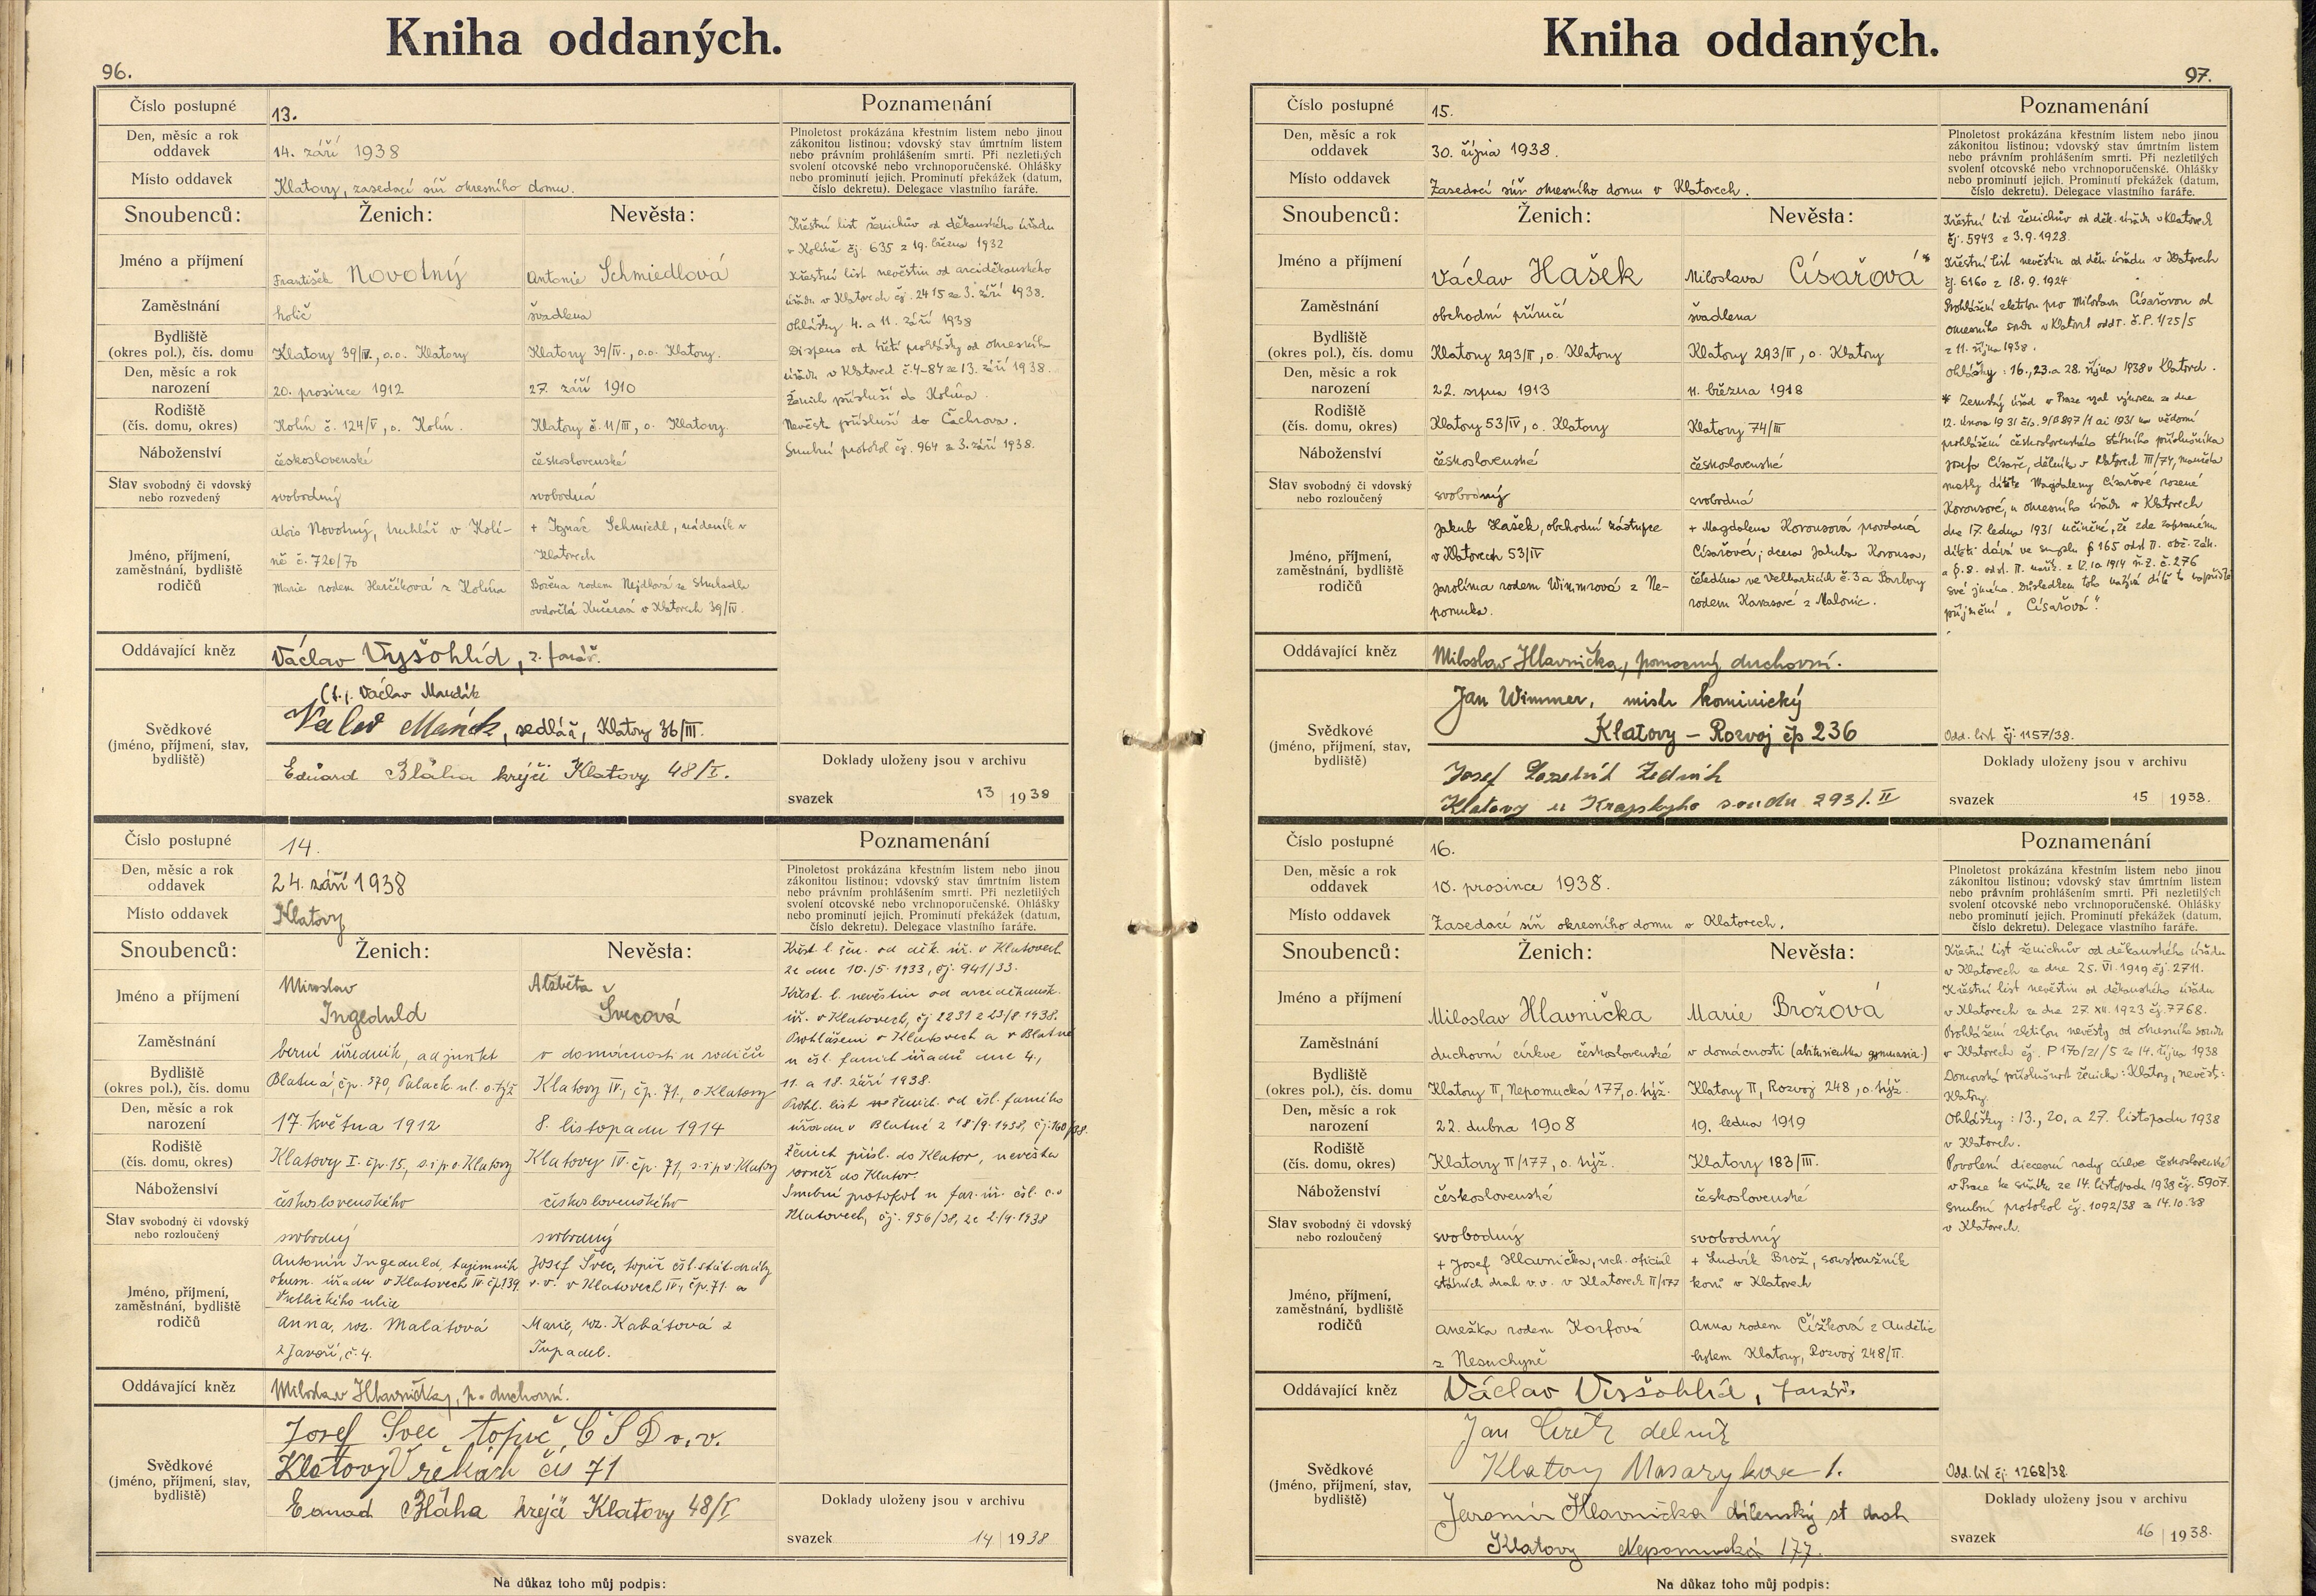 Kniha oddaných.
96.
Číslo postupné 13.
Den, měsíc a rok oddavek 14. září 1938
Místo oddavek Klatovy, zasedací síň okresního domu.
Poznamenání
Plnoletost prokázána křestním listem nebo jinou
zákonitou listinou; vdovský stav úmrtním listem
nebo právním prohlášením smrti. Při nezletilých
svolení otcovské nebo vrchnoporučenské. Ohlášky
nebo prominutí jejich. Prominutí překážek (datum,
číslo dekretu). Delegace vlastního faráře.
Snoubenců: Ženich: Nevěsta:
Jméno a příjmení František Novotný Antonie Schmiedlová
Zaměstnání holič švadlena
Bydliště (okres pol.), čís. domu Klatovy 39/IV., o.o. Klatovy Klatovy 39/IV., o.o. Klatovy.
Den, měsíc a rok narození 20. prosince 1912 27. září 1910
Rodiště (čís. domu, okres) Kolín č. 124/V, o. Kolín. Klatovy č. 11/III, o. Klatovy.
Náboženství československé československé
Stav svobodný či vdovský nebo rozvedený svobodný svobodná
Jméno, příjmení, zaměstnání, bydliště rodičů
Alois Novotný, truhlář v Kolí-
ně č. 720/70
Marie rodem z Kolína
+ Ignác Schmiedl, nádeník v
Klatovech
Božena rodem Nejdlová ze Struhadla
ovdovělá Kučerová v Klatovech 39/IV.
Křestní list ženichův od děkanského úřadu
v Kolíně čj. 635 z 19. března 1932
Křestní list nevěstin od arciděkanského
úřadu v Klatovech čj. 2415 ze 3. září 1938.
Ohlášky 4. a 11. září 1938
Dispens od třetí prohlášky od okresního
úřadu v Klatovech č. 4-84 ze 13. září 1938.
Ženich přísluší do Kolína.
Nevěsta přísluší do Čachrova.
Snubní protokol čj. 964 z 3. září 1938.
Oddávající kněz Václav Vyšohlíd, z. farář.
Svědkové (jméno, příjmení, stav, bydliště)
(t.j. Václav
sedlář, Klatovy 36/III.
Eduard Bláha krejčí Klatovy 48/I.
Doklady uloženy jsou v archivu
svazek 13 1938
Číslo postupné 14.
Den, měsíc a rok oddavek 24. září 1938
Místo oddavek Klatovy
Poznamenání
Plnoletost prokázána křestním listem nebo jinou
zákonitou listinou; vdovský stav úmrtním listem
nebo právním prohlášením smrti. Při nezletilých
svolení otcovské nebo vrchnoporučenské. Ohlášky
nebo prominutí jejich. Prominutí překážek (datum,
číslo dekretu). Delegace vlastního faráře.
Snoubenců: Ženich: Nevěsta:
Jméno a příjmení Miroslav Ingeduld Alžběta Švecová
Zaměstnání berní úředník, adjunkt v domácnosti u rodičů
Bydliště (okres pol.), čís. domu Blatná, čp. 570, Palack. ul. o. týž Klatovy IV., čp. 71., o. Klatovy
Den, měsíc a rok narození 17. května 1912 8. listopadu 1914
Rodiště (čís. domu, okres) Klatovy I. čp. 15, s. i p. o. Klatovy Klatovy IV. čp. 71, s. i p. o. Klatovy
Náboženství československého československého
Stav svobodný či vdovský nebo rozloučený svobodný svobodný
Jméno, příjmení, zaměstnání, bydliště rodičů
Antonín Ingeduld, tajemník
okres. úřadu v Klatovech IV čp. 139
Vrchlického ulice
Anna, roz. Malátová
z Javoří, č. 4.
Josef Švec, topič čsl. stát. dráhy
v. v. v Klatovech IV, čp. 71. a
Marie, roz. Kabátová z
Tupadel.
Křest. l. žen. od děk. úř. v Klatovech
ze dne 10./5. 1933, čj. 941/33.
Křest. l. nevěstin od arciděkansk.
úř. v Klatovech, čj 2231 z 23/8 1938.
Prohlášení v Klatovech a v Blatné
u čsl. farních úřadů dne 4.,
11. a 18. září 1938.
Prohl. list ženich. od čsl. farního
úřadu v Blatné z 18/9. 1938, čj. 160/38.
Ženich přísl. do Klatov, nevěsta
rovněž do Klatov.
Snubní protokol u far. úř. čsl. c. v
Klatovech, čj. 956/38, ze 2/9. 1938
Oddávající kněz Miloslav Hlavnička, p. duchovní.
Svědkové (jméno, příjmení, stav, bydliště)
Josef Švec topič ČSD v. v.
Klatovy V řekách čís 71
Eduard Bláha krejčí Klatovy 48/I
Doklady uloženy jsou v archivu
svazek 14 1938
Na důkaz toho můj podpis:
Kniha oddaných.
97.
Číslo postupné 15.
Den, měsíc a rok oddavek 30. října 1938.
Místo oddavek Zasedací síň okresního domu v Klatovech.
Poznamenání
Plnoletost prokázána křestním listem nebo jinou
zákonitou listinou; vdovský stav úmrtním listem
nebo právním prohlášením smrti. Při nezletilých
svolení otcovské nebo vrchnoporučenské. Ohlášky
nebo prominutí jejich. Prominutí překážek (datum,
číslo dekretu). Delegace vlastního faráře.
Snoubenců: Ženich: Nevěsta:
Jméno a příjmení Václav Hašek Miloslava Císařová*
Zaměstnání obchodní příručí švadlena
Bydliště (okres pol.), čís. domu Klatovy 293/II, o. Klatovy Klatovy 293/II, o. Klatovy
Den, měsíc a rok narození 22. srpna 1913 11. března 1918
Rodiště (čís. domu, okres) Klatovy 53/IV, o. Klatovy Klatovy 74/III
Náboženství československé československé
Stav svobodný či vdovský nebo rozloučený svobodný svobodná
Jméno, příjmení, zaměstnání, bydliště rodičů
Jakub Hašek, obchodní zástupce
v Klatovech 53/IV
Karolína rodem Wimmrová z Ne-
pomuka.
+ Magdalena Korousová provdaná
Císařová; dcera Jakuba Korousa,
čeledína ve Velharticích č. 3 a Barbory
rodem Karasové z Malonic.
Křestní list ženichův od děk. úřadu v Klatovech
čj. 5943 z 3. 9. 1928.
Křestní list nevěstin od děk. úřadu v Klatovech
čj. 6160 z 18. 9. 1924
Prohlášení zletilou pro Miloslavu Císařovou od
okresního soudu v Klatovech odd I. č. P. 1/25/5
z 11. října 1938.
Ohlášky: 16., 23. a 28. října 1938 v Klatovech.
* Zemský úřad v Praze vzal výnosem ze dne
12. února 1931 čís. 9/B897/1 ai 1931 na vědomí
prohlášení československého státního příslušníka
Josefa Císaře, dělníka v Klatovech III/74, manžela
matky dítěte Magdaleny Císařové rozené
Korousové, u okresního úřadu v Klatovech
dne 17. ledna 1931 učiněné, že zde zapsanému
dítěti dává ve smyslu § 165 odst II. obč. zák.
a § 8. odst. II. nař. z 12. 10 1914 ř. z. č. 276
své jméno. Následkem toho užívá dítě to napříště
příjmění „Císařová".
Oddávající kněz Miloslav Hlavnička, pomocný duchovní.
Svědkové (jméno, příjmení, stav, bydliště)
Jan Wimmer, mistr kominický
Klatovy – Rozvoj čp 236
Josef Zedník
Klatovy u Krajského soudu 293/. II
Odd. list čj. 1157/38.
Doklady uloženy jsou v archivu
svazek 15 1938.
Číslo postupné 16.
Den, měsíc a rok oddavek 10. prosince 1938.
Místo oddavek Zasedací síň okresního domu v Klatovech.
Poznamenání
Plnoletost prokázána křestním listem nebo jinou
zákonitou listinou; vdovský stav úmrtním listem
nebo právním prohlášením smrti. Při nezletilých
svolení otcovské nebo vrchnoporučenské. Ohlášky
nebo prominutí jejich. Prominutí překážek (datum,
číslo dekretu). Delegace vlastního faráře.
Snoubenců: Ženich: Nevěsta:
Jméno a příjmení Miloslav Hlavnička Marie Brožová
Zaměstnání duchovní církve československé v domácnosti (abiturientka gymnasia)
Bydliště (okres pol.), čís. domu Klatovy II, Nepomucká 177, o. týž. Klatovy II, Rozvoj 248, o. týž.
Den, měsíc a rok narození 22. dubna 1908 19. ledna 1919
Rodiště (čís. domu, okres) Klatovy II/177, o. týž. Klatovy 183/III.
Náboženství československé československé
Stav svobodný či vdovský nebo rozloučený svobodný svobodný
Jméno, příjmení, zaměstnání, bydliště rodičů
+ Josef Hlavnička, vrch. oficiál
státních drah v. v. v Klatovech II/177
Anežka rodem Korfová
z Nesuchyně
+ Ludvík Brož, soustružník
kovů v Klatovech
Anna rodem Čížková z Oudělic
bytem Klatovy, Rozvoj 248/II.
Křestní list ženichův od děkanského úřadu
v Klatovech ze dne 25. VI. 1919 čj. 2711.
Křestní list nevěstin od děkanského úřadu
v Klatovech ze dne 27. XII. 1923 čj. 7768.
Prohlášení zletilou nevěsty od okresního soudu
v Klatovech čj. P 170/21/5 ze 14. října 1938
Domovská příslušnost ženicha: Klatovy, nevěst:
Klatovy.
Ohlášky: 13., 20. a 27. listopadu 1938
v Klatovech.
Povolení diecesní rady církve československé
v Praze ke sňatku ze 14. listopadu 1938 čj. 5907.
Snubní protokol čj. 1092/38 z 14. 10. 38
v Klatovech.
Oddávající kněz Václav Vyšohlíd, farář.
Svědkové (jméno, příjmení, stav, bydliště)
Jan dělník
Klatovy Masarykova 1.
Jaromír Hlavnička dílenský st drah
Klatovy Nepomucká 177.
Odd. list čj. 1268/38.
Doklady uloženy jsou v archivu
svazek 16 1938.
Na důkaz toho můj podpis: